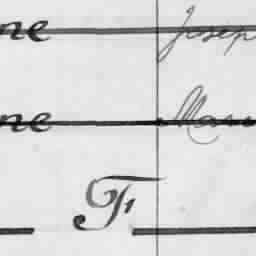 ne Josep
ne Mau
F